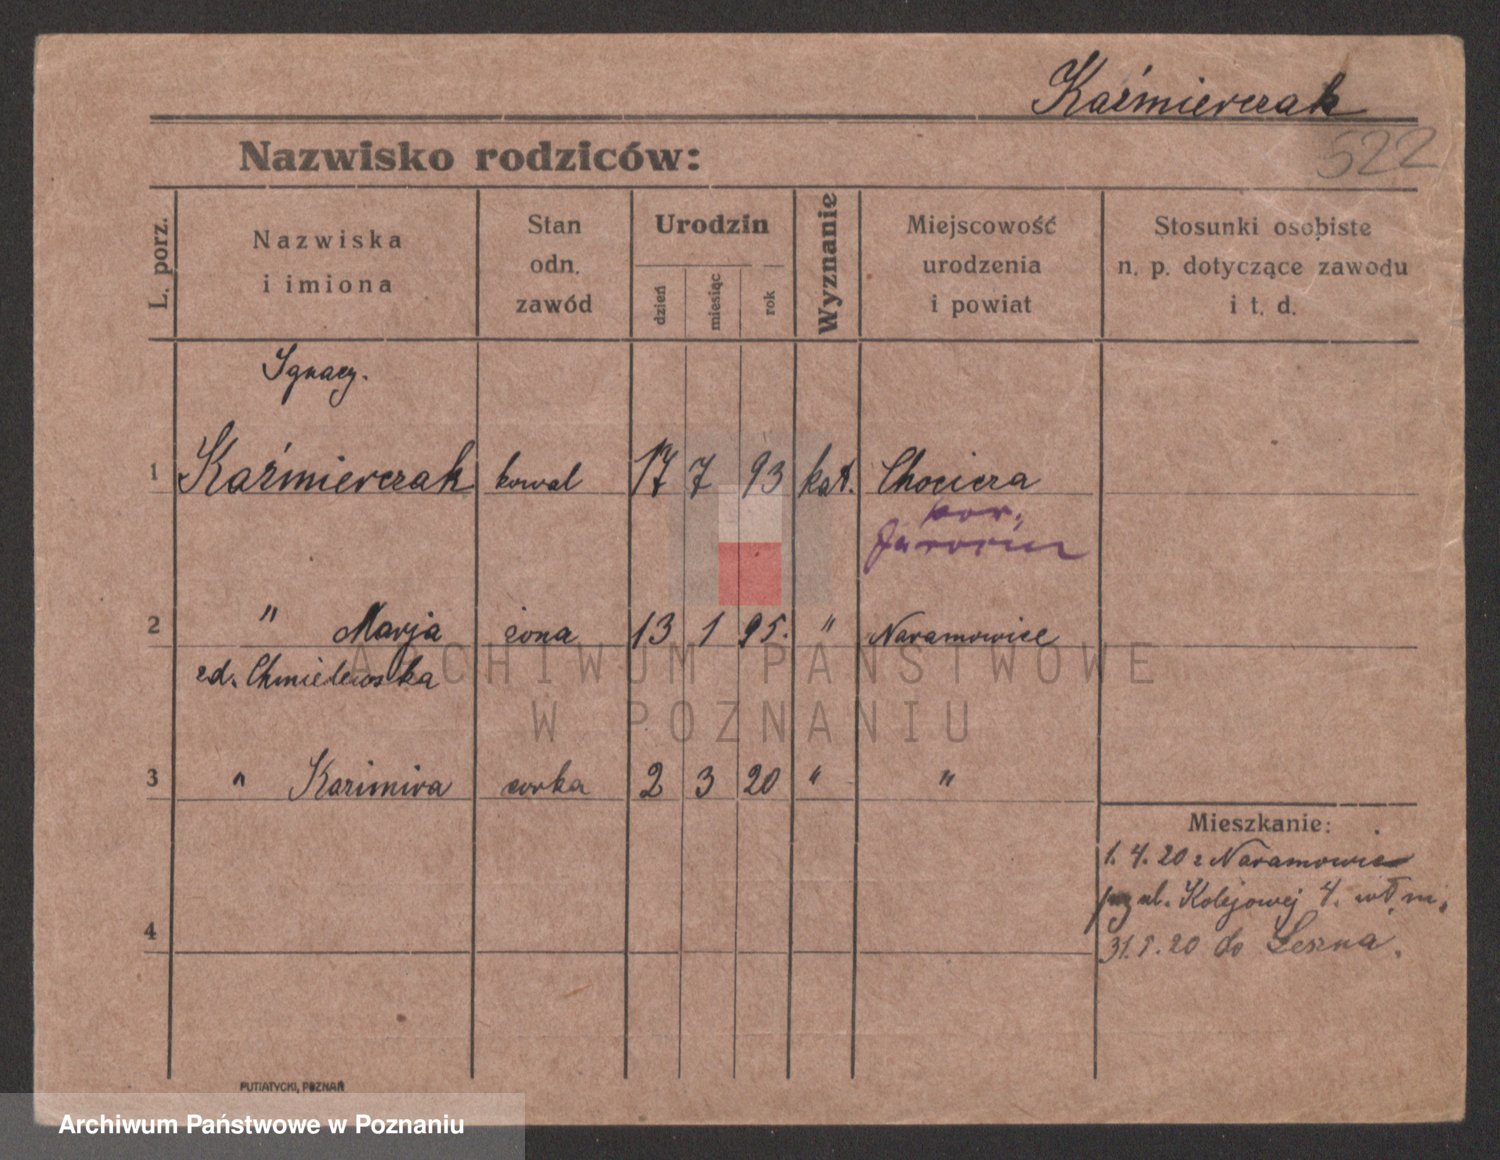 Kaźmierczak
522
Nazwisko rodziców:
L. porz.
Nazwiska
i imiona
Stan
odn.
zawód
Urodzin
dzień
miesiąc
rok
Wyznanie
Miejscowość
urodzenia
i powiat
Stosunki osobiste
n. p. dotyczące zawodu
i t. d.
Ignacy.
1 Kaźmierczak kowal 17 7 93 kat. Chocicza
pow.
Jarocin
2 " Marja żona 13 1 95. " Naramowice
zd. Chmielewska
3 " Kazimira corka 2 3 20 " "
Mieszkanie:
1. 4. 20 z Naramowic
ul. Kolejowej 4.
4
31.5.20 do Leszna.
PUTIATYCKI, POZNAŃ
ARCHIWUM PAŃSTWOWE
W POZNANIU
Archiwum Państwowe w Poznaniu